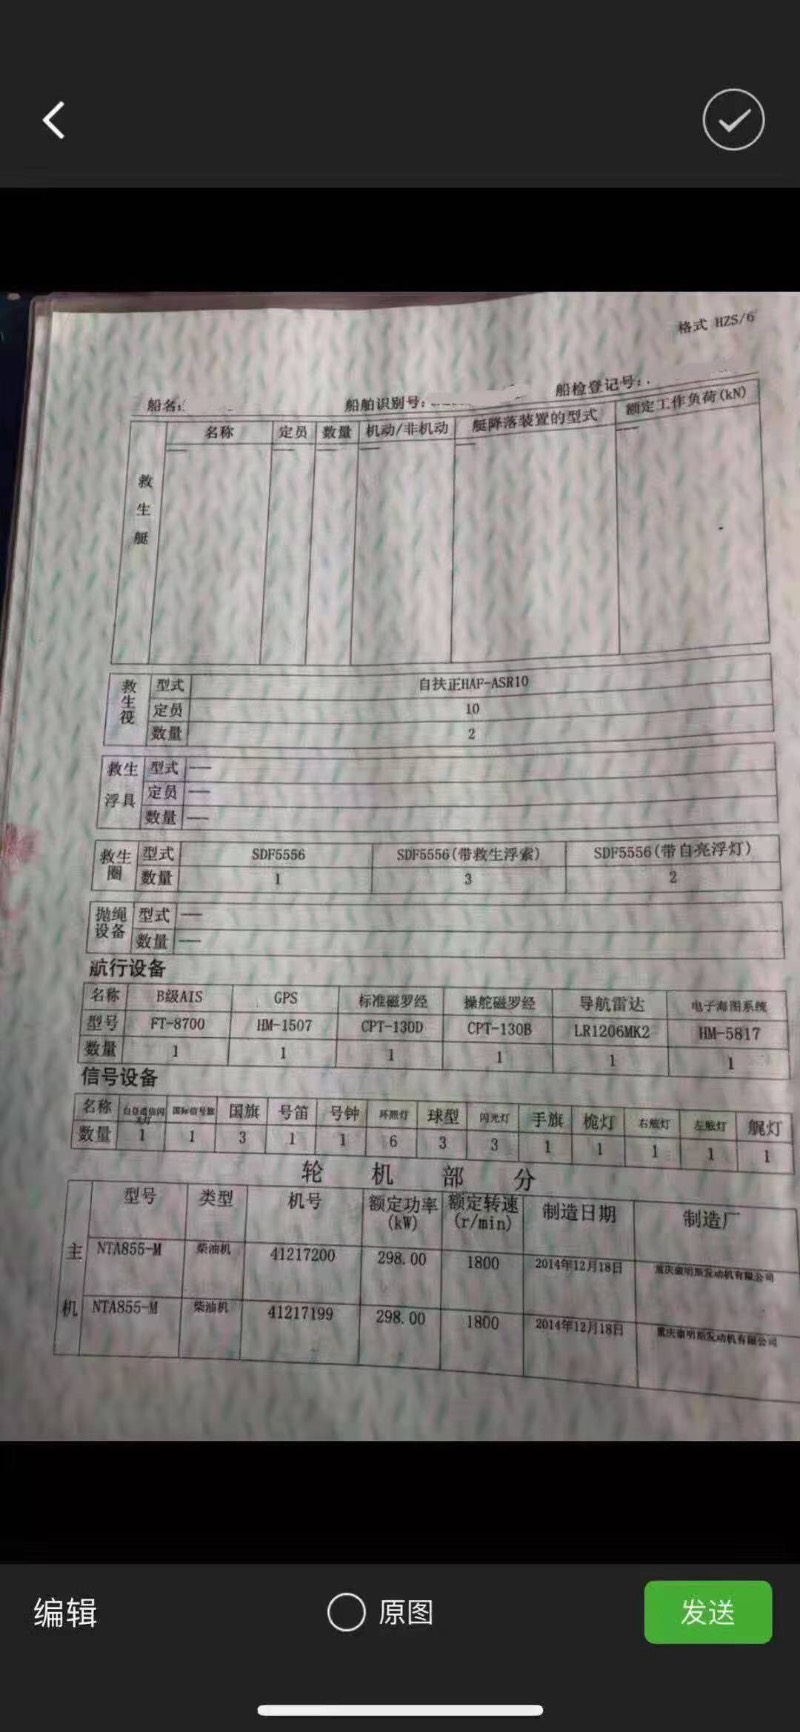 格式 HZS/6
船名: 船舶识别号: 船检登记号:
救生艇 名称 定员 数量 机动/非机动 艇降落装置的型式 额定工作负荷(kN)
— — — — — —
救生筏 型式 自扶正HAF-ASR10
定员 10
数量 2
救生浮具 型式 —
定员 —
数量 —
救生圈 型式 SDF5556 SDF5556(带救生浮索) SDF5556(带自亮浮灯)
数量 1 3 2
抛绳设备 型式 —
数量 —
航行设备
名称 B级AIS GPS 标准磁罗经 操舵磁罗经 导航雷达 电子海图系统
型号 FT-8700 HM-1507 CPT-130D CPT-130B LR1206MK2 HM-5817
数量 1 1 1 1 1 1
信号设备
名称 白昼通信闪光灯 国际信号旗 国旗 号笛 号钟 环照灯 球型 闪光灯 手旗 桅灯 右舷灯 左舷灯 艉灯
数量 1 1 3 1 1 6 3 3 1 1 1 1 1
轮机部分
主机 型号 类型 机号 额定功率(kW) 额定转速(r/min) 制造日期 制造厂
NTA855-M 柴油机 41217200 298.00 1800 2014年12月18日 重庆康明斯发动机有限公司
NTA855-M 柴油机 41217199 298.00 1800 2014年12月18日 重庆康明斯发动机有限公司
编辑 原图 发送